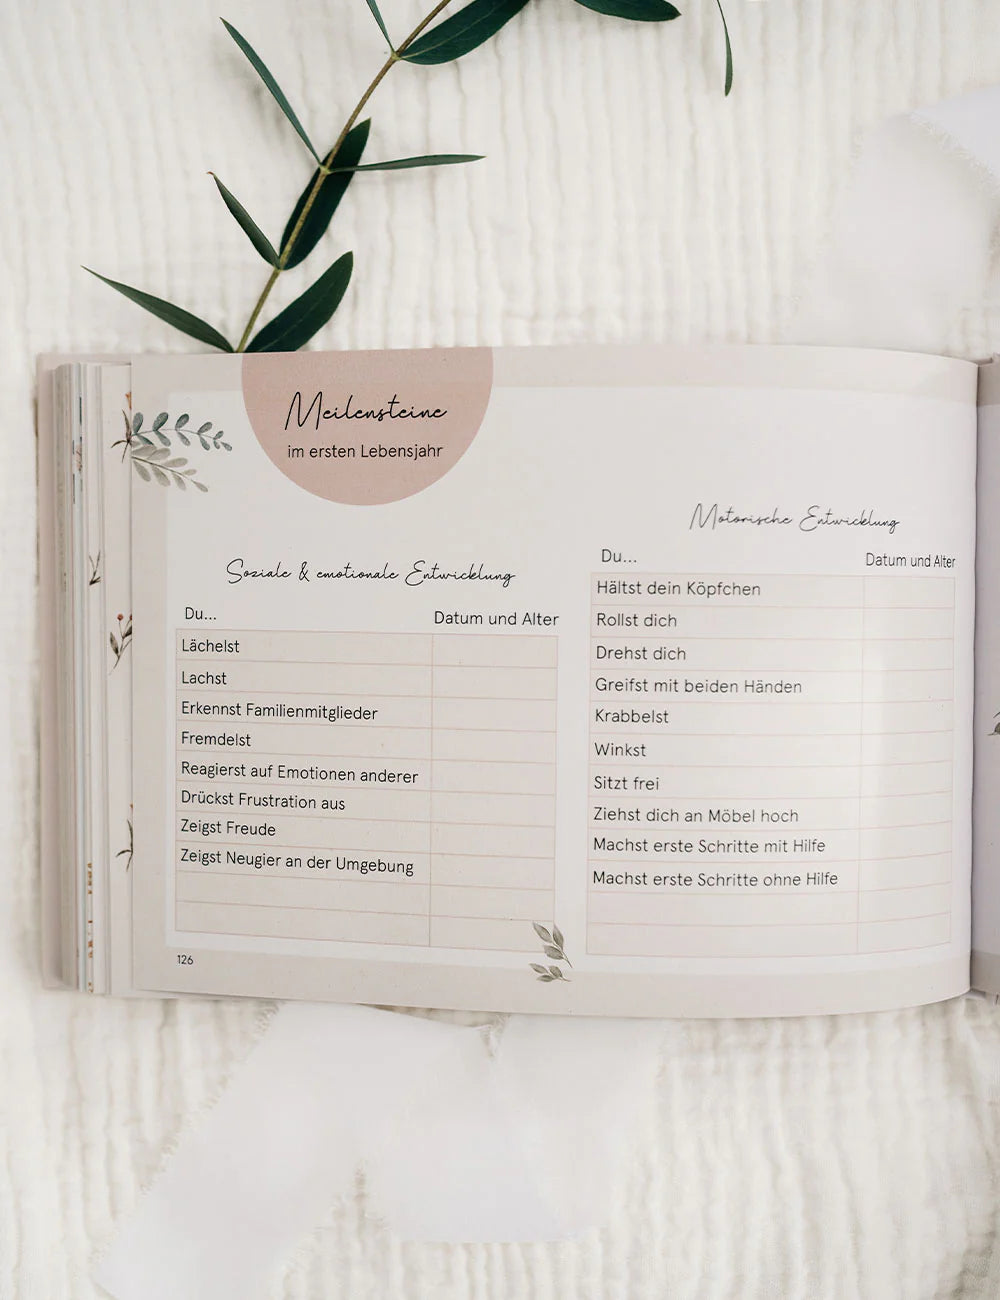 Meilensteine
im ersten Lebensjahr
Soziale & emotionale Entwicklung
Du...
Datum und Alter
Lächelst
Lachst
Erkennst Familienmitglieder
Fremdelst
Reagierst auf Emotionen anderer
Drückst Frustration aus
Zeigst Freude
Zeigst Neugier an der Umgebung
126
Motorische Entwicklung
Du...
Datum und Alter
Hältst dein Köpfchen
Rollst dich
Drehst dich
Greifst mit beiden Händen
Krabbelst
Winkst
Sitzt frei
Ziehst dich an Möbel hoch
Machst erste Schritte mit Hilfe
Machst erste Schritte ohne Hilfe